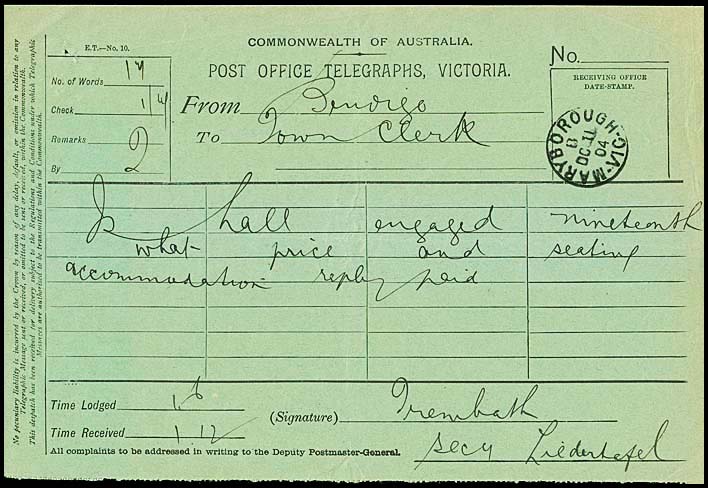 No pecuniary liability is incurred by the Crown by reason of any delay, default, or omission in relation to any
Telegraphic Message sent or received, or omitted to be sent or received, within the Commonwealth.
This despatch has been received for delivery subject to the Regulations and Conditions under which Telegraphic
Messages are authorized to be transmitted within the Commonwealth.
E.T.—No. 10.
COMMONWEALTH OF AUSTRALIA.
POST OFFICE TELEGRAPHS, VICTORIA.
No.
RECEIVING OFFICE
DATE-STAMP.
MARYBOROUGH·VIC
OC 11
04
No. of Words 17
Check
Remarks
By
From Bendigo
To Town Clerk
Is hall engaged nineteenth
what price and seating
accommodation reply paid
Time Lodged 1.6
Time Received 1.12
(Signature) Trembath
secy Liedertafel
All complaints to be addressed in writing to the Deputy Postmaster-General.